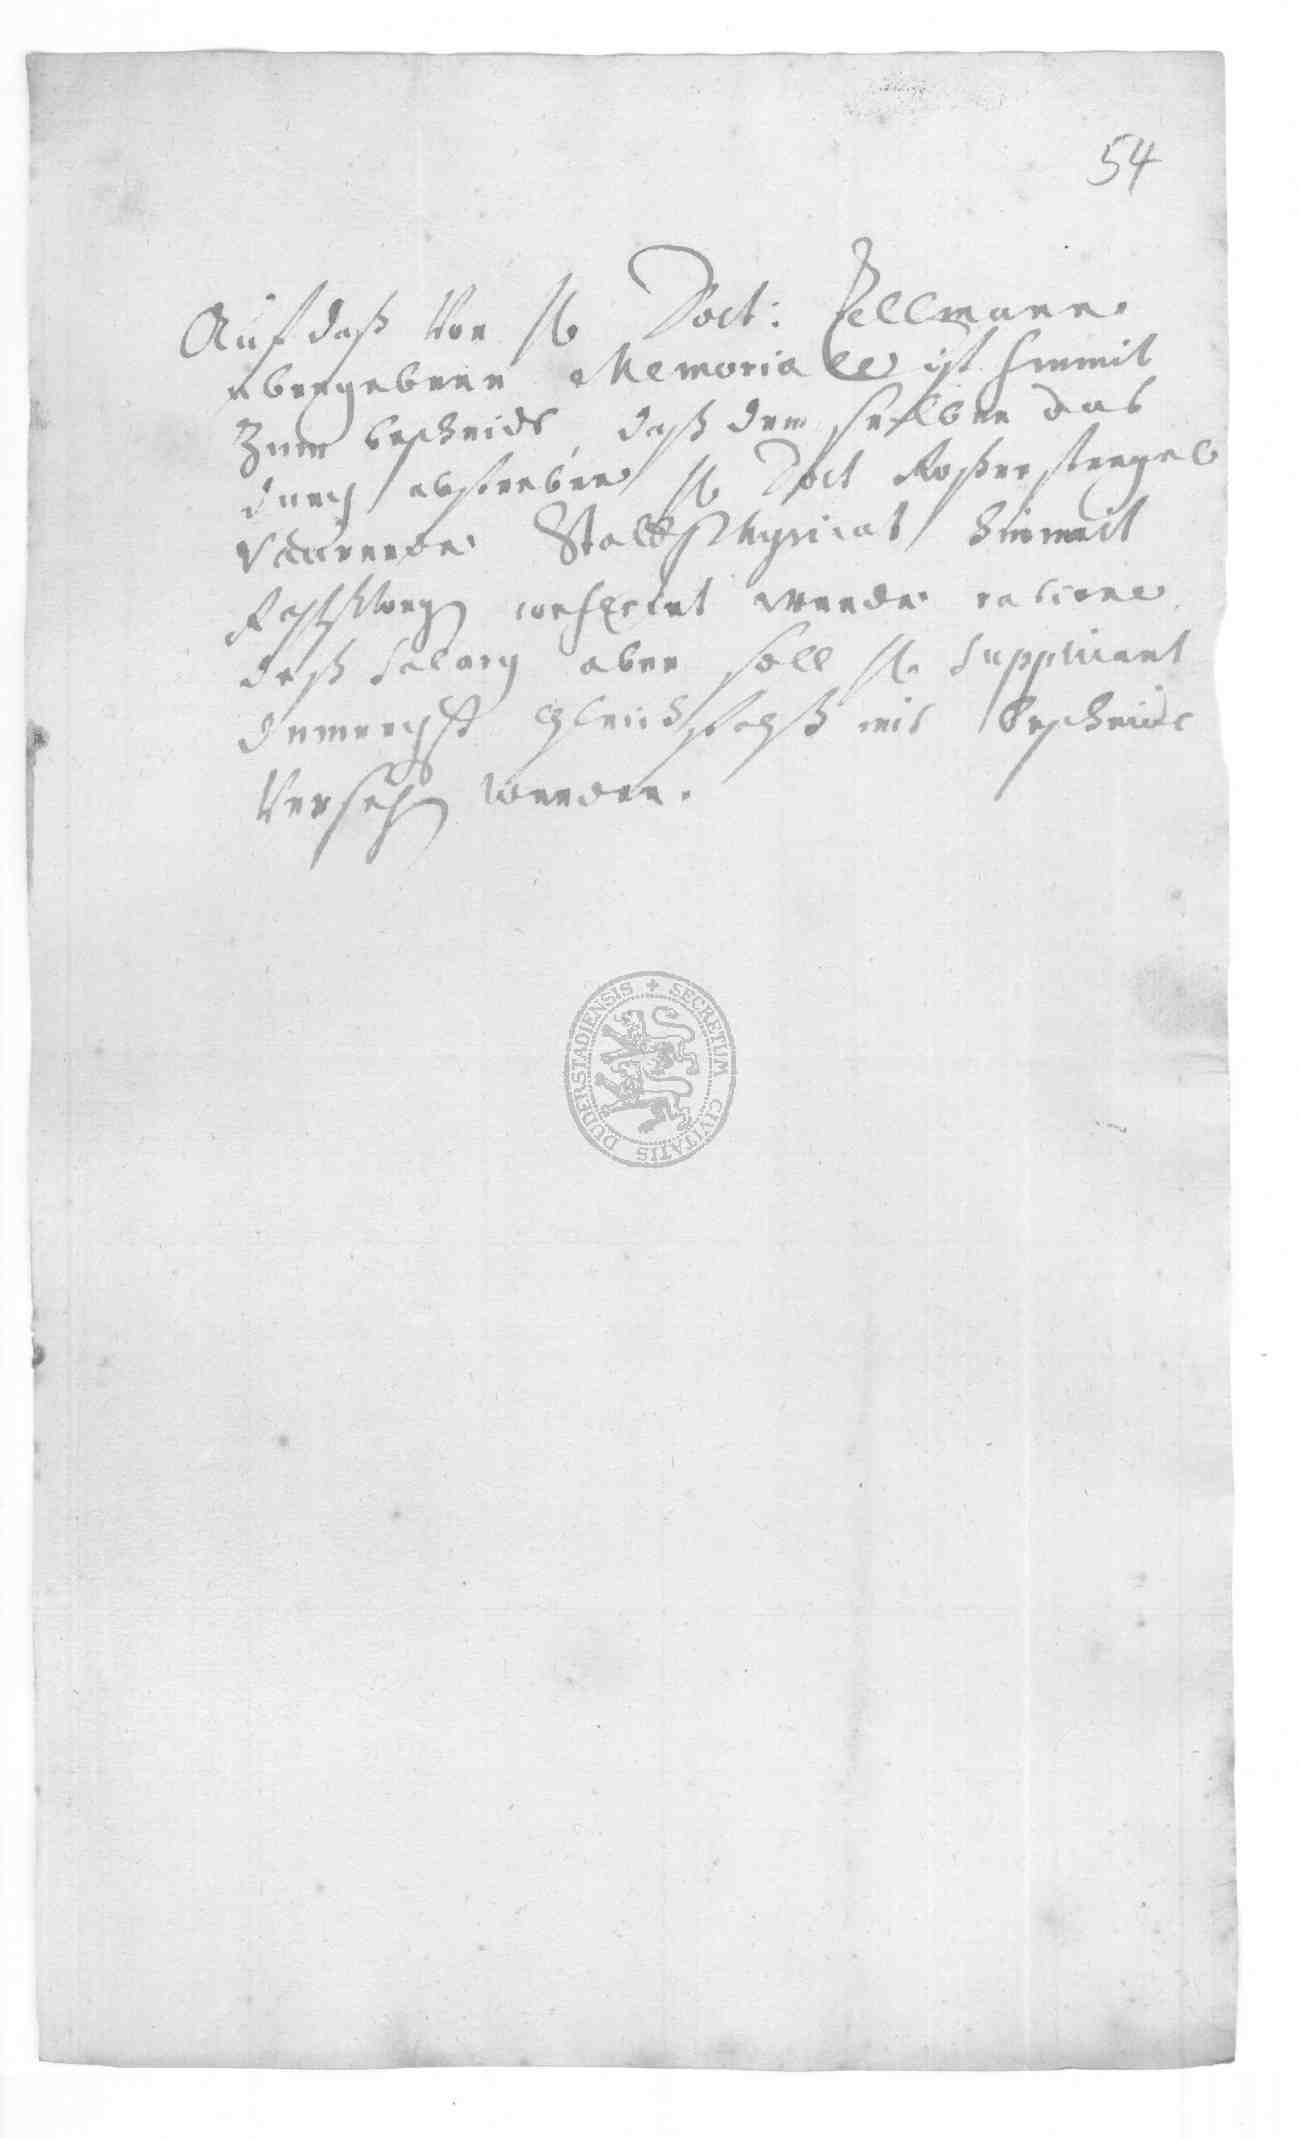 54
Auf daß Von H. Doct: Zellmann
übergebene Memoriale ist hiemit
Zum bescheidt, daß dem selben das
durch absterben H. Doct Roßenstengel
Vacirende StattPhysicat hiemit
conferiret werde ratione
deß Salarij aber soll H. Supplicant
demnechst gleichfalß mit Bescheidt
Versehen werden.
SECRETUM CIVITATIS DUDERSTADIENSIS